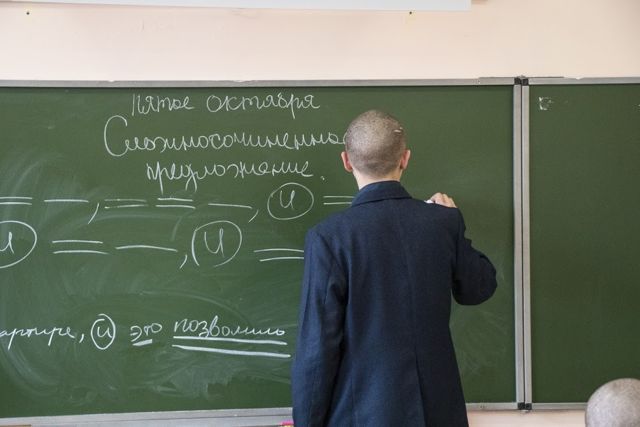 Пятое октября
Сложносочиненно
предложение.
, , и
и , и
артире, и это позволило